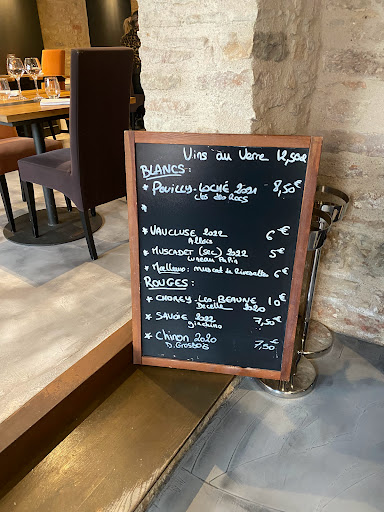 Vins au Verre 12,5cl
BLANCS:
* POUILLY-LOCHÉ 2021 8,50€
Clos des Rocs
*
* VAUCLUSE 2022 6€
* MUSCADET (SEC) 2022 5€
Luneau Papin
* Moelleux: MUSCAT de Rivesaltes 6€
ROUGES:
* CHOREY-Les-BEAUNE 10€
Decelle 2020
* SAVOIE 2022 7,50€
giachino
* Chinon 2020 7,50€
D. Grosbois